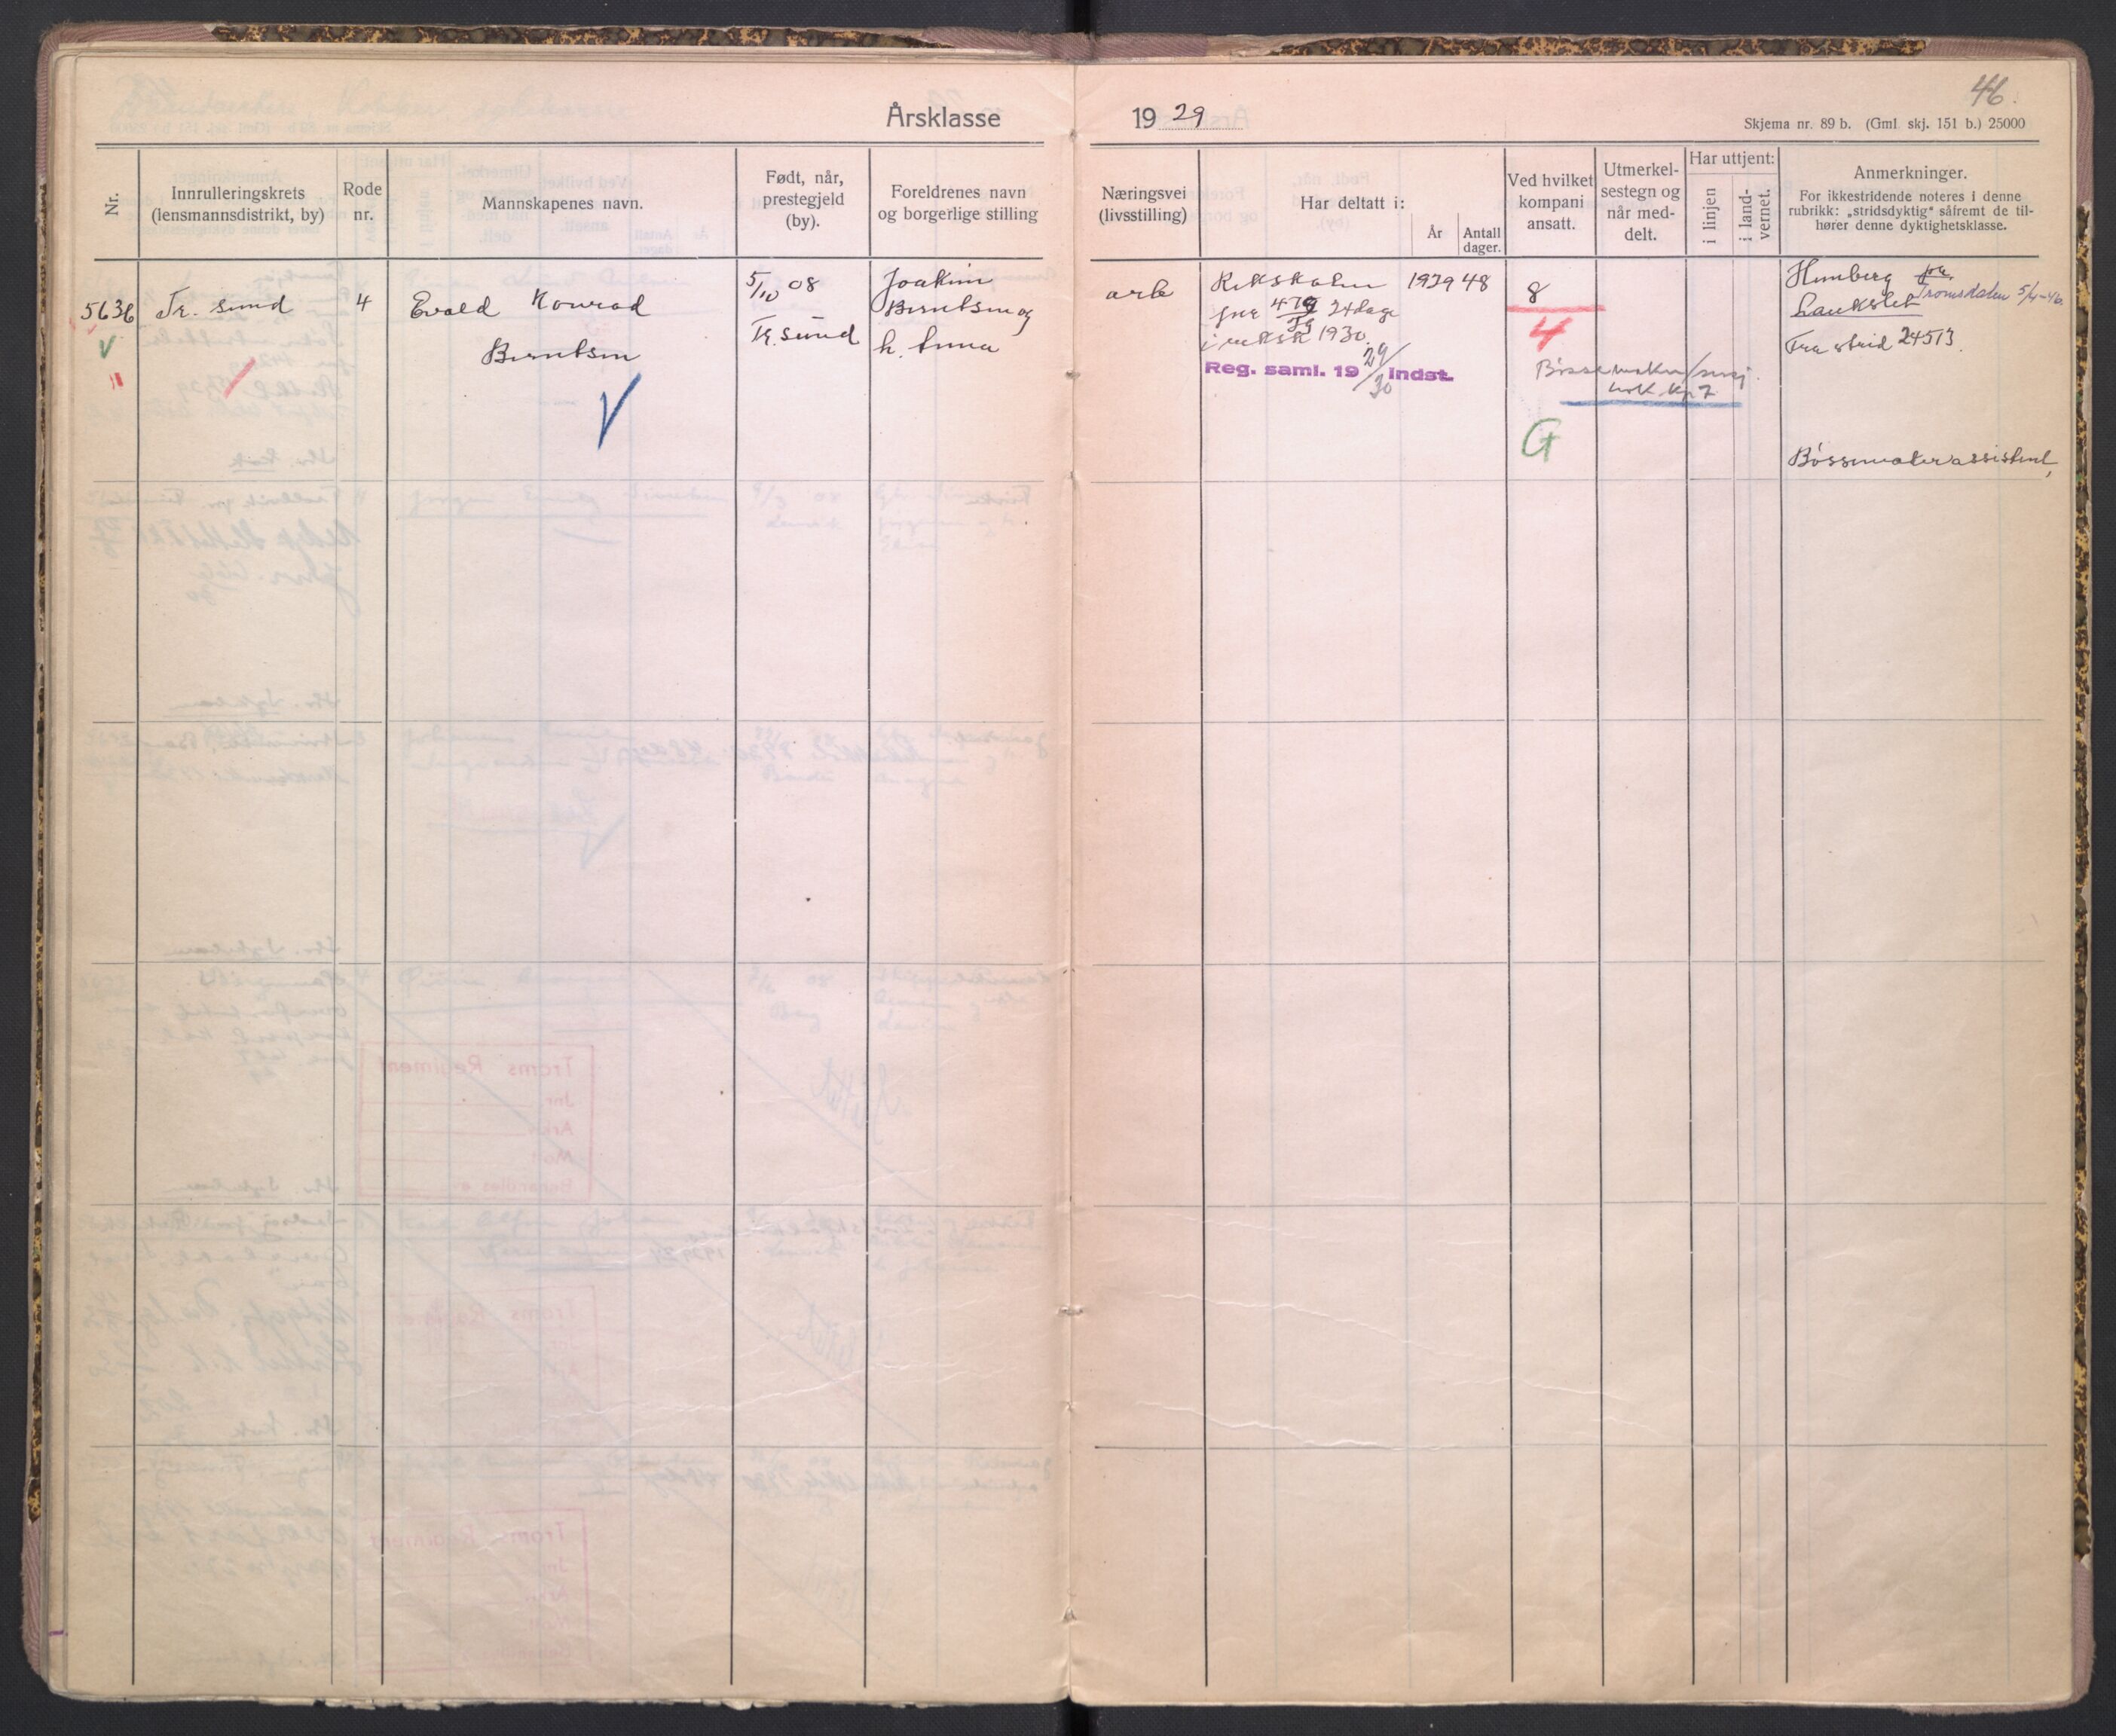 46.
Årsklasse 1929
Skjema nr. 89 b. (Gml. skj. 151 b.) 25000
Nr.
Innrulleringskrets
(lensmannsdistrikt, by)
Rode
nr.
Mannskapenes navn.
Født, når,
prestegjeld
(by).
Foreldrenes navn
og borgerlige stilling
Næringsvei
(livsstilling)
Har deltatt i:
År
Antall
dager.
Ved hvilket
kompani
ansatt.
Utmerkel-
sestegn og
når med-
delt.
Har uttjent:
i linjen
i land-
vernet.
Anmerkninger.
For ikkestridende noteres i denne
rubrikk: „stridsdyktig" såfremt de til-
hører denne dyktighetsklasse.
5636
Tr. sund
4
Evald Konrad
Berntsen
5/10 08
Tr. sund
Joakim
Berntsen og
h. Anna
arb
Rekskolen 1929 48
24 dage
i reksk 1930.
Reg. saml. 19 29/30 Indst.
8
4
G
Tromsdalen 5/4-46
Laukslet
Fra strid 24513.
Bøssemakerassistent,